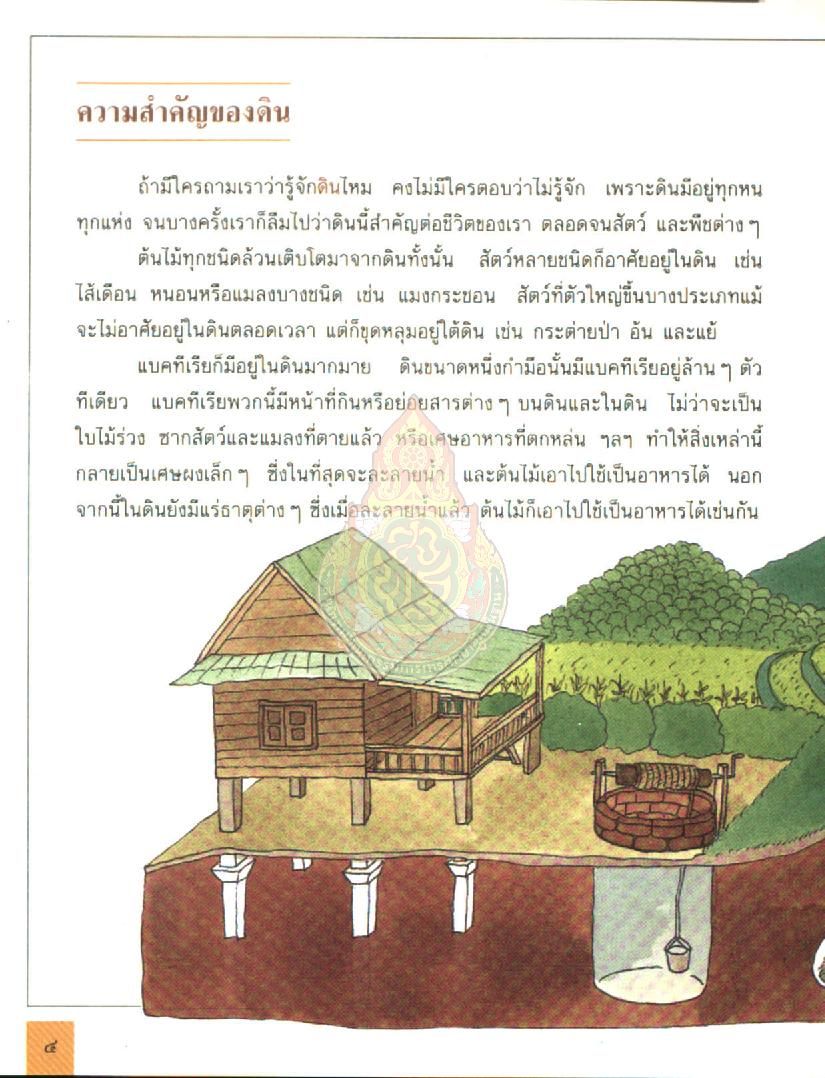 ความสำคัญของดิน
ถ้ามีใครถามเราว่ารู้จักดินไหม คงไม่มีใครตอบว่าไม่รู้จัก เพราะดินมีอยู่ทุกหน
ทุกแห่ง จนบางครั้งเราก็ลืมไปว่าดินนี้สำคัญต่อชีวิตของเรา ตลอดจนสัตว์ และพืชต่าง ๆ
ต้นไม้ทุกชนิดล้วนเติบโตมาจากดินทั้งนั้น สัตว์หลายชนิดก็อาศัยอยู่ในดิน เช่น
ไส้เดือน หนอนหรือแมลงบางชนิด เช่น แมงกระชอน สัตว์ที่ตัวใหญ่ขึ้นบางประเภทแม้
จะไม่อาศัยอยู่ในดินตลอดเวลา แต่ก็ขุดหลุมอยู่ใต้ดิน เช่น กระต่ายป่า อ้น และแย้
แบคทีเรียก็มีอยู่ในดินมากมาย ดินขนาดหนึ่งกำมือนั้นมีแบคทีเรียอยู่ล้าน ๆ ตัว
ทีเดียว แบคทีเรียพวกนี้มีหน้าที่กินหรือย่อยสารต่าง ๆ บนดินและในดิน ไม่ว่าจะเป็น
ใบไม้ร่วง ซากสัตว์และแมลงที่ตายแล้ว หรือเศษอาหารที่ตกหล่น ฯลฯ ทำให้สิ่งเหล่านี้
กลายเป็นเศษผงเล็ก ๆ ซึ่งในที่สุดจะละลายน้ำ และต้นไม้เอาไปใช้เป็นอาหารได้ นอก
จากนี้ในดินยังมีแร่ธาตุต่าง ๆ ซึ่งเมื่อละลายน้ำแล้ว ต้นไม้ก็เอาไปใช้เป็นอาหารได้เช่นกัน
๔